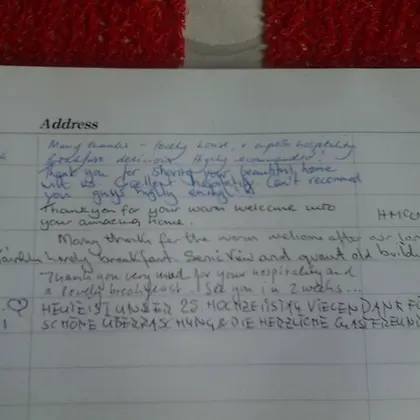 Address
Many thanks - lovely house, + superb hospitality
Breakfast delicious. Highly recommended!
Thank you for sharing your beautiful home
with us. Excellent hospitality. Can't recommend
you guys highly enough
Thank you for your warm welcome into
your amazing home.
Many thanks for the warm welcome after our
lovely breakfast. Scenic View and quant old
Thank you very much for your hospitality and
a lovely breakfast. See you in 2 weeks...
HEUTE IST UNSER 25. HOCHZEITSTAG VIELEN DANK FÜ
SCHÖNE ÜBERRASCHUNG & DIE HERZLICHE GASTFREUND